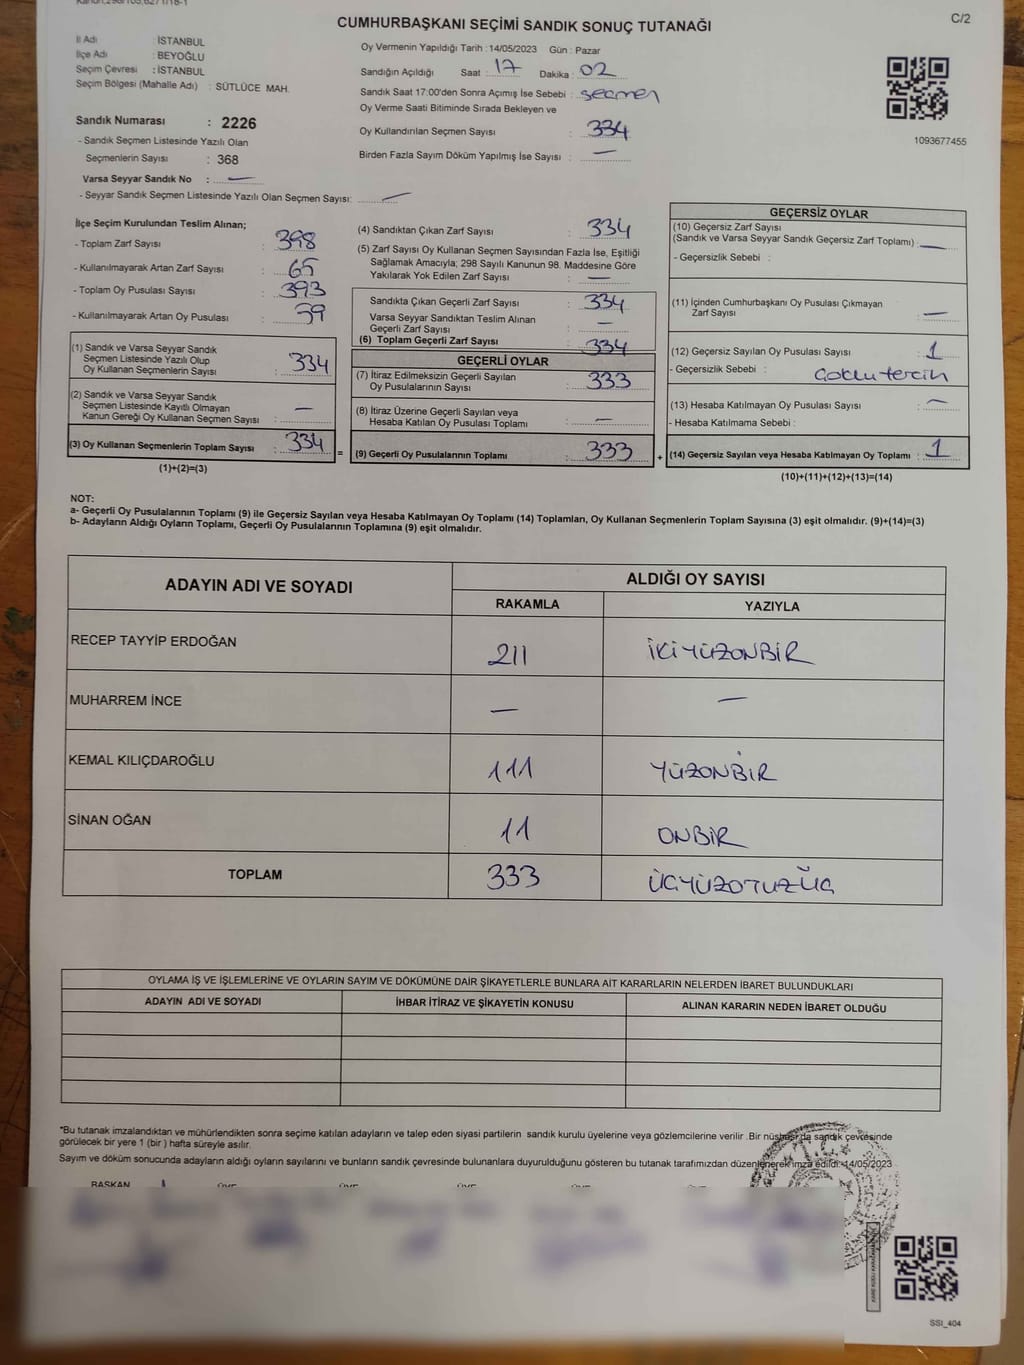 CUMHURBAŞKANI SEÇİMİ SANDIK SONUÇ TUTANAĞI
C/2
İl Adı : İSTANBUL
İlçe Adı : BEYOĞLU
Seçim Çevresi : İSTANBUL
Seçim Bölgesi (Mahalle Adı) : SÜTLÜCE MAH.
Sandık Numarası : 2226
- Sandık Seçmen Listesinde Yazılı Olan
Seçmenlerin Sayısı : 368
Varsa Seyyar Sandık No : —
- Seyyar Sandık Seçmen Listesinde Yazılı Olan Seçmen Sayısı: —
Oy Vermenin Yapıldığı Tarih : 14/05/2023 Gün : Pazar
Sandığın Açıldığı Saat : 17 Dakika : 02
Sandık Saat 17:00'den Sonra Açımış İse Sebebi : seçmen
Oy Verme Saati Bitiminde Sırada Bekleyen ve
Oy Kullandırılan Seçmen Sayısı : 334
Birden Fazla Sayım Döküm Yapılmış İse Sayısı : —
1093677455
İlçe Seçim Kurulundan Teslim Alınan;
- Toplam Zarf Sayısı : 398
- Kullanılmayarak Artan Zarf Sayısı : 65
- Toplam Oy Pusulası Sayısı : 393
- Kullanılmayarak Artan Oy Pusulası : 59
(1) Sandık ve Varsa Seyyar Sandık
Seçmen Listesinde Yazılı Olup
Oy Kullanan Seçmenlerin Sayısı : 334
(2) Sandık ve Varsa Seyyar Sandık
Seçmen Listesinde Kayıtlı Olmayan
Kanun Gereği Oy Kullanan Seçmen Sayısı : —
(3) Oy Kullanan Seçmenlerin Toplam Sayısı : 334
(1)+(2)=(3)
=
(4) Sandıktan Çıkan Zarf Sayısı : 334
(5) Zarf Sayısı Oy Kullanan Seçmen Sayısından Fazla İse, Eşitliği
Sağlamak Amacıyla; 298 Sayılı Kanunun 98. Maddesine Göre
Yakılarak Yok Edilen Zarf Sayısı : —
Sandıkta Çıkan Geçerli Zarf Sayısı : 334
Varsa Seyyar Sandıktan Teslim Alınan
Geçerli Zarf Sayısı : —
(6) Toplam Geçerli Zarf Sayısı : 334
GEÇERLİ OYLAR
(7) İtiraz Edilmeksizin Geçerli Sayılan
Oy Pusulalarının Sayısı : 333
(8) İtiraz Üzerine Geçerli Sayılan veya
Hesaba Katılan Oy Pusulası Toplamı : —
(9) Geçerli Oy Pusulalarının Toplamı : 333
+
GEÇERSİZ OYLAR
(10) Geçersiz Zarf Sayısı
(Sandık ve Varsa Seyyar Sandık Geçersiz Zarf Toplamı) : —
- Geçersizlik Sebebi :
(11) İçinden Cumhurbaşkanı Oy Pusulası Çıkmayan
Zarf Sayısı : —
(12) Geçersiz Sayılan Oy Pusulası Sayısı : 1
- Geçersizlik Sebebi : Çoklu tercih
(13) Hesaba Katılmayan Oy Pusulası Sayısı : —
- Hesaba Katılmama Sebebi :
(14) Geçersiz Sayılan veya Hesaba Katılmayan Oy Toplamı : 1
(10)+(11)+(12)+(13)=(14)
NOT:
a- Geçerli Oy Pusulalarının Toplamı (9) ile Geçersiz Sayılan veya Hesaba Katılmayan Oy Toplamı (14) Toplamları, Oy Kullanan Seçmenlerin Toplam Sayısına (3) eşit olmalıdır. (9)+(14)=(3)
b- Adayların Aldığı Oyların Toplamı, Geçerli Oy Pusulalarının Toplamına (9) eşit olmalıdır.
ADAYIN ADI VE SOYADI
ALDIĞI OY SAYISI
RAKAMLA YAZIYLA
RECEP TAYYİP ERDOĞAN 211 İKİYÜZONBİR
MUHARREM İNCE — —
KEMAL KILIÇDAROĞLU 111 YÜZONBİR
SİNAN OĞAN 11 ONBİR
TOPLAM 333 ÜÇYÜZOTUZÜÇ
OYLAMA İŞ VE İŞLEMLERİNE VE OYLARIN SAYIM VE DÖKÜMÜNE DAİR ŞİKAYETLERLE BUNLARA AİT KARARLARIN NELERDEN İBARET BULUNDUKLARI
ADAYIN ADI VE SOYADI İHBAR İTİRAZ VE ŞİKAYETİN KONUSU ALINAN KARARIN NEDEN İBARET OLDUĞU
*Bu tutanak imzalandıktan ve mühürlendikten sonra seçime katılan adayların ve talep eden siyasi partilerin sandık kurulu üyelerine veya gözlemcilerine verilir .Bir nüshası da sandık çevresinde
görülecek bir yere 1 (bir ) hafta süreyle asılır.
Sayım ve döküm sonucunda adayların aldığı oyların sayılarını ve bunların sandık çevresinde bulunanlara duyurulduğunu gösteren bu tutanak tarafımızdan düzenlenerek imza edildi. 14/05/2023
BAŞKAN ÜYE ÜYE ÜYE ÜYE
SSI_404